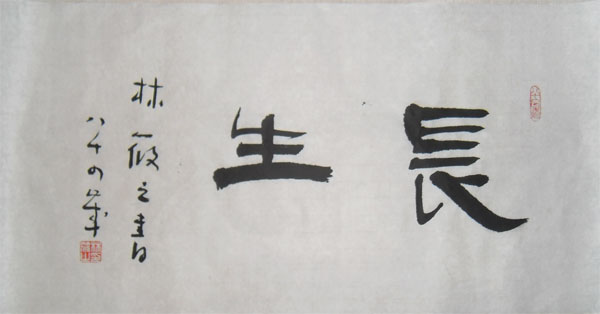 長生
林筱之書
八十四歲